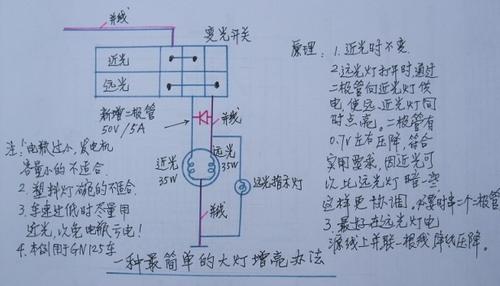 并线
变光开关
近光
远光
新增二极管
50V/5A
并线
近光
35W
远光
35W
远光指示灯
并线
注:1.电瓶过小、发电机
容量小的不适合.
2.塑料灯碗的不适合.
3.车速过低时尽量用
近光,以免电瓶亏电!
4.本例用于GN125车
一种最简单的大灯增亮办法
原理:1.近光时不变.
2.远光灯打开时,通过
二极管向近光灯供
电,使远、近光灯同
时点亮。二极管有
0.7V左右压降,符合
实用要求,因近光可
以比远光灯暗一些,
这样更协调。不要时串二个二极管
3.最好在远光灯电
源线上并联一根线,降线压降。